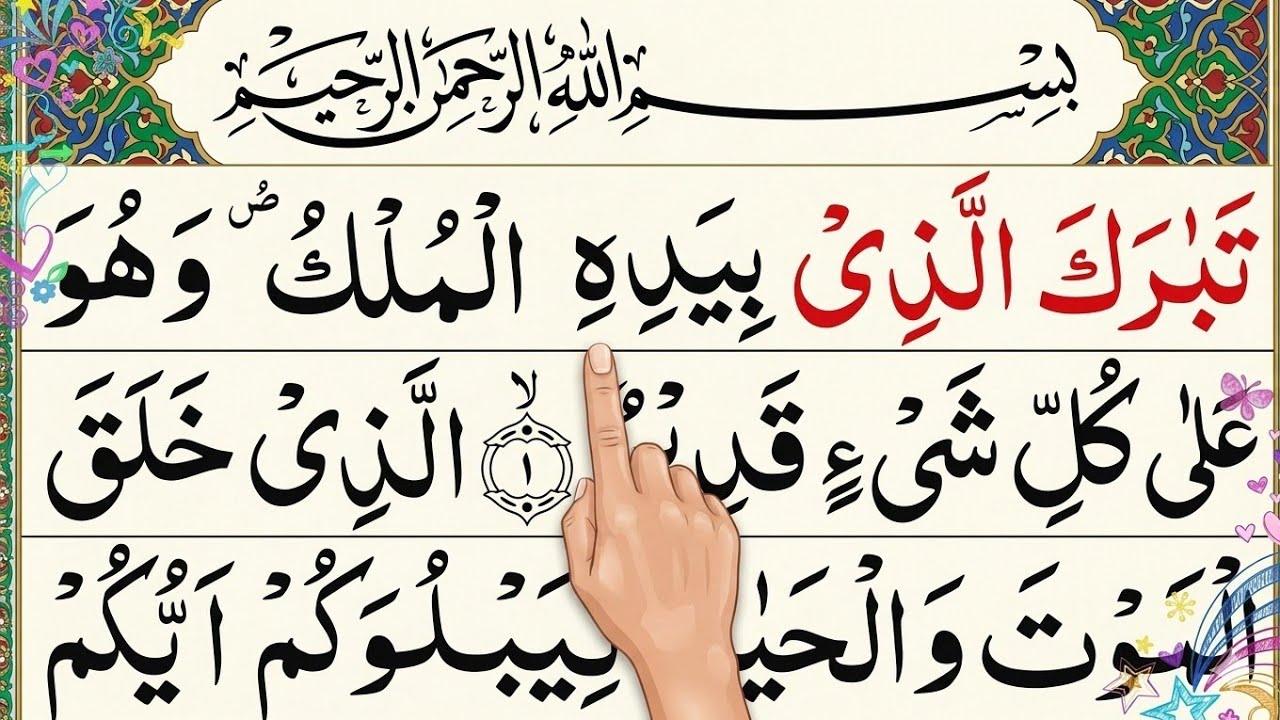 بِسْمِ اللهِ الرَّحْمٰنِ الرَّحِيْمِ
تَبٰرَكَ الَّذِىْ بِيَدِهِ الْمُلْكُ ۖ وَهُوَ
عَلٰى كُلِّ شَىْءٍ قَدِيْرُ ۙ ١ الَّذِىْ خَلَقَ
الْمَوْتَ وَالْحَيٰوةَ لِيَبْلُوَكُمْ اَيُّكُمْ